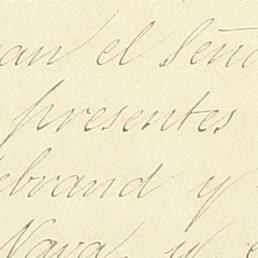 an el Seño
presentes
ebrand y
Nava, y e